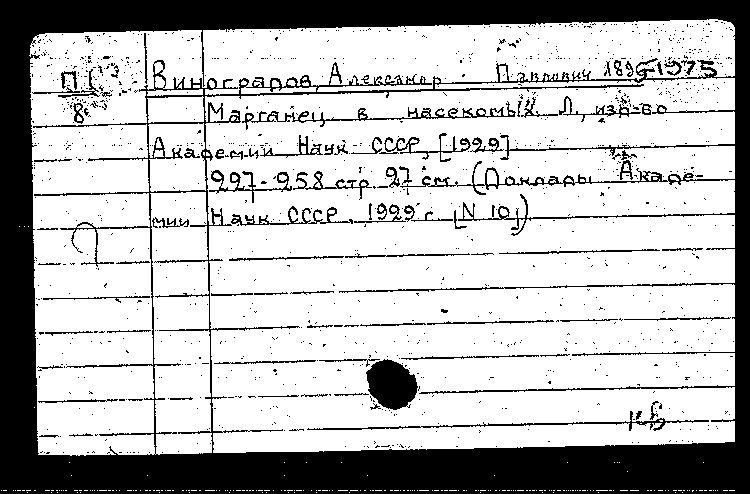 П
8
Виноградов, Александр Павлович 1895-1975
Марганец в насекомых. Л., изд-во
Академии Наук СССР, [1929]
227-258 стр. 27 см. (Доклады Акаде-
мии Наук СССР, 1929 г. [N 10])